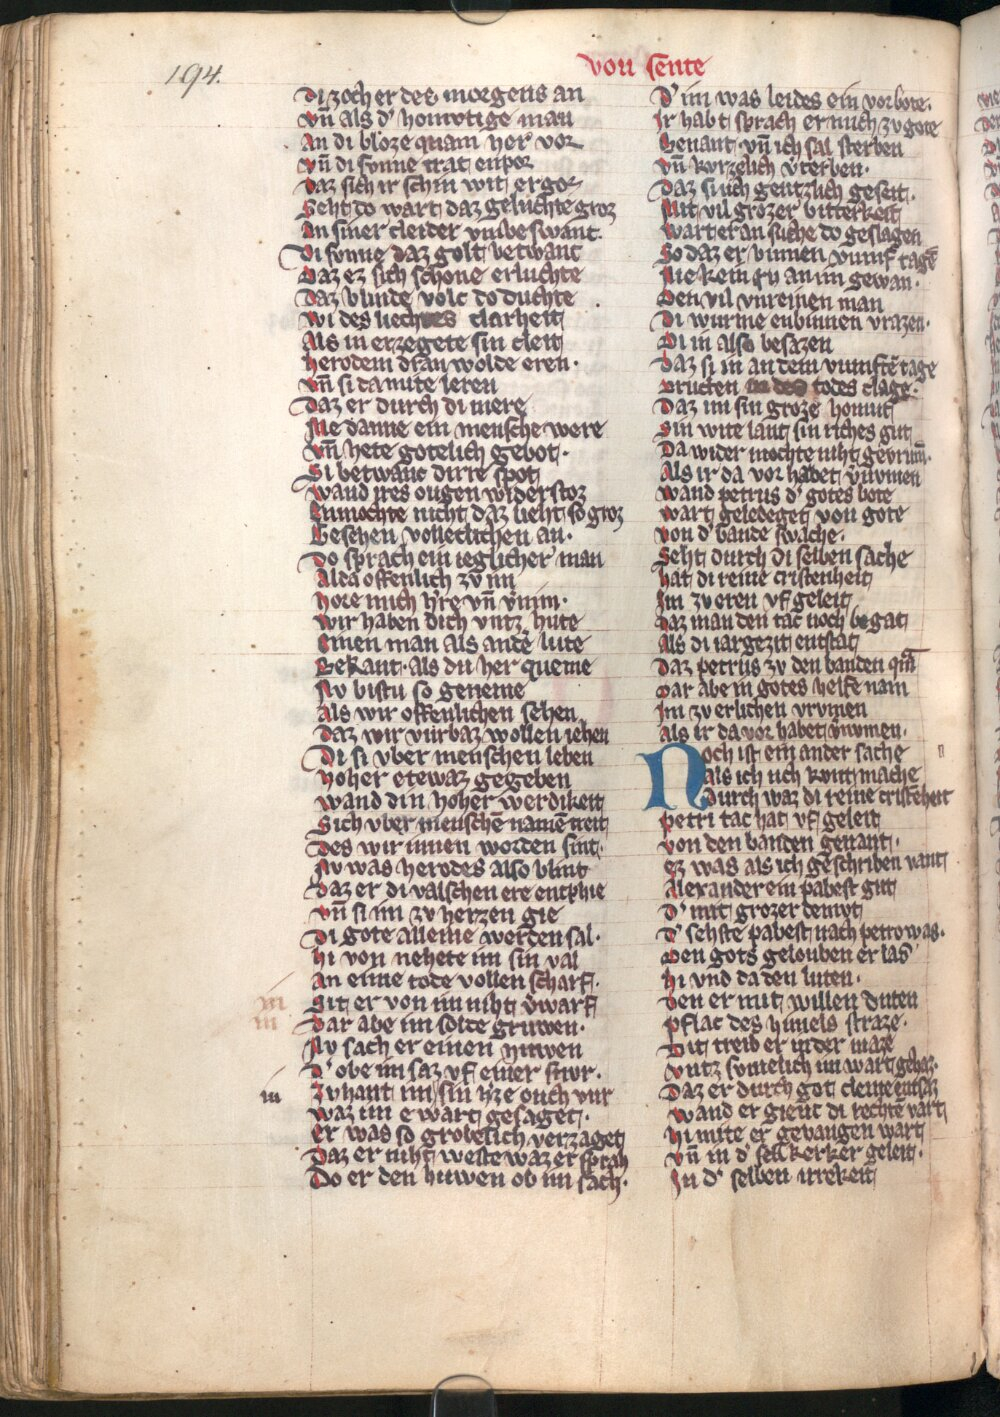 194.
von sente
Di zoch er des morgens an
vn̄ als d' homvtige man
An di bloze quam her vor
vn̄ di sunne trat enpor
Daz sich ir schin wit ergoz
Seht do wart daz geluchte groz
An siner cleider vmbeswanc.
Di sunne daz golt betwanc
Daz ez sich schone erluchte
Daz blinde volc do duchte
wi des liechtes clarheit
Als in erzegete sin cleit
herodem dran wolde eren.
vn̄ si da mite leren
Daz er durch di mere
Me danne ein mensche were
vn̄ hete gotelich gebot.
Si betwanc dirre spot
wand ires ougen widerstoz
Enmochte nicht daz lieht so groz
Besehen volleclichen an.
Do sprach ein ieglicher man
Alda offenlich zv im
hore mich h're vn̄ v'nim.
wir haben dich vntz hute
Einen man als ande' lute
Bekant. Als du her queme
Nv bistu so geneme
Als wir offenlichen sehen
Daz wir vurbaz wollen iehen
Di si vber menschen leben
hoher etewaz gegeben
wand din hoher werdikeit
Sich vber menschē namē treit
Des wir innen worden sint.
Nv was herodes also blint
Daz er di valschen ere entphie
vn̄ si im zv herzen gie
Di gote alleine werden sal.
hi von nehete im sin val
An eime tode vollen scharf.
Sit er von im niht v'warf
Dar abe im solde gruwen.
Nv sach er einen huwen
D' obe im saz vf einer snvr.
Zvhant im sin h'ze ouch vur
waz im e wart gesaget.
er was so grobelich verzaget
Daz er niht weste waz er sprach
Do er den huwen ob im sach.
D' im was leides ein vorbote.
Ir habt sprach er mich zv gote
Benant vn̄ ich sal sterben
vn̄ kvrzelich v'terben.
Daz si uch gentzlich geseit.
Mit vil grozer bitterkeit
wart er an suche do geslagen
So daz er binnen vumf tagē
Nie kein rv an im gewan.
Den vil vnreinen man
Di wurme enbinnen vrazen.
Di in also besazen
Daz si in an dem vumftē tage
Bructen in des todes clage.
Daz im sin groze homut
Sin wite lant sin riches gut
Da wider mochte niht gevrumē.
Als ir da vor habet v'numen
wand petrus d' gotes bote
wart geledeget von gote
von d' bande swache.
Seht durch di selben sache
hat di reine cristenheit
Im zv eren vf geleit
Daz man den tac noch begat
Als di iargezit entstat
Daz petrus zv den banden qua̅
Dar abe in gotes helfe nam
Im zv erlichen vrumen
Als ir da vor habet v'numen.
Noch ist ein ander sache
als ich uch kunt mache
Durch waz di reine cristēheit
petri tac hat vf geleit
von den banden genant.
ez was als ich geschriben vant
Alexander ein pabest gut
D' mit grozer demvt
D' sehste pabest nach petro was.
Den gots gelouben er las
hi vnd da den luten.
Den er mit willen duten
pflac des himels straze.
Dit treib er in der maze
vntz sumelich im wart gehaz.
Daz er durch got cleine entsaz
wand er gienc di rechtē vart
hi mite er gevangen wart
vn̄ in d' selb kerker geleit.
In d' selben irrekeit